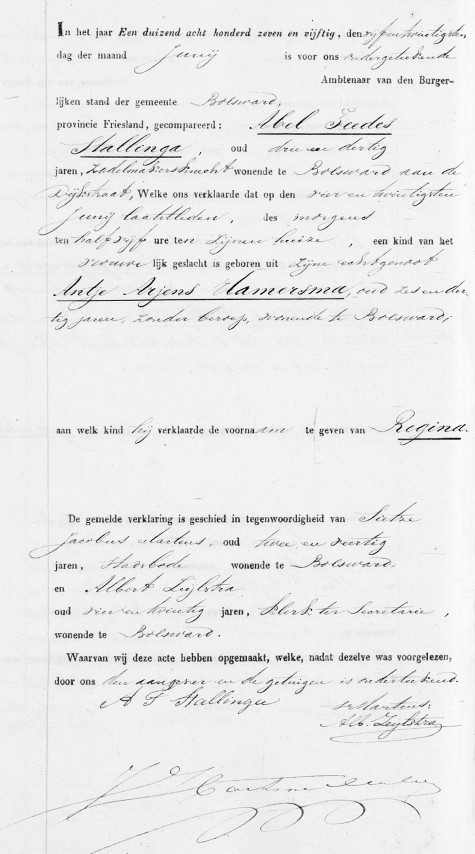 In het jaar Een duizend acht honderd zeven en vijftig, den vijf en twintigsten
dag der maand Junij is voor ons ondergeteekende
Ambtenaar van den Burger-
lijken stand der gemeente Bolsward,
provincie Friesland, gecompareerd: Abel Feedes
Stallinga, oud drie en dertig
jaren, zadelmakersknecht wonende te Bolsward aan de
Dijkstraat, Welke ons verklaarde dat op den vier en twintigsten
Junij laatstleden, des morgens
ten half vijf ure ten zijnen huize, een kind van het
vrouwe lijk geslacht is geboren uit zijne echtgenoot
Antje Arjens Hamersma, oud zes en der-
tig jaren, zonder beroep, wonende te Bolsward;
aan welk kind hij verklaarde de voornaam te geven van Regina.
De gemelde verklaring is geschied in tegenwoordigheid van Sietze
Jacobus Martens, oud twee en veertig
jaren, Stadsbode wonende te Bolsward.
en Albert Zijlstra
oud vier en twintig jaren, klerk ter Secretarie,
wonende te Bolsward.
Waarvan wij deze acte hebben opgemaakt, welke, nadat dezelve was voorgelezen,
door ons den aangever en de getuigen is onderteekend.
A F Stallinga
Martens.
Alb. Zijlstra